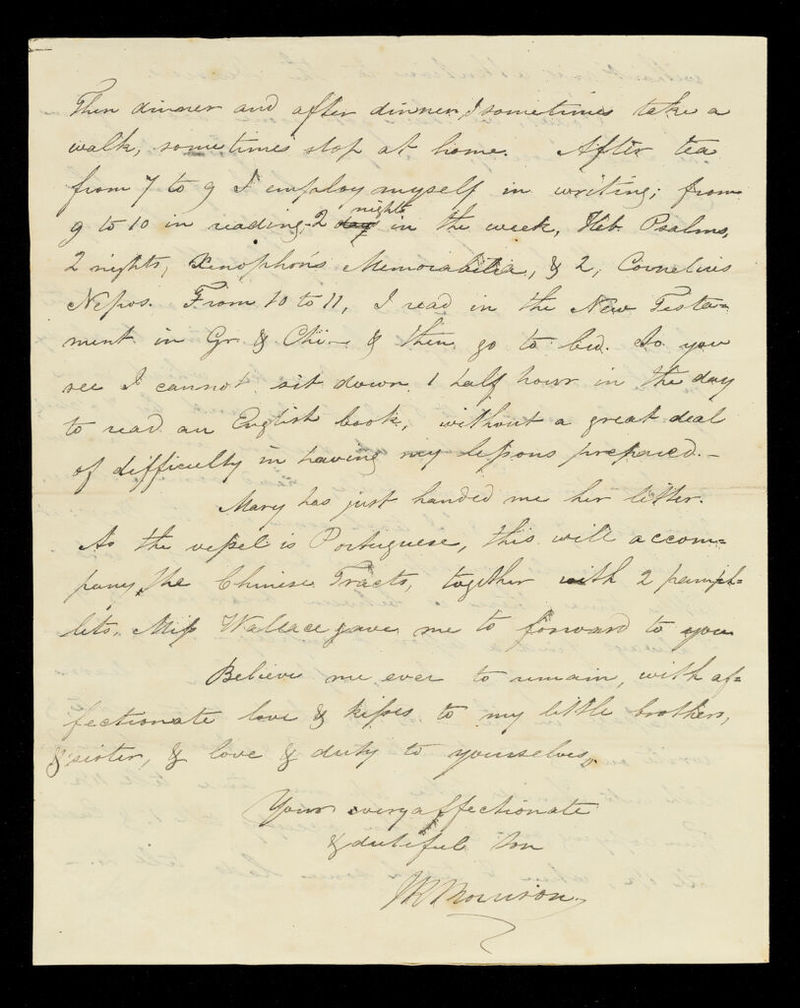 Then dinner and after dinner I sometimes take a
walk, sometimes stop at home. After tea
from 7 to 9 I employ myself in writing; from
nights
9 to 10 in reading, 2 days in the week, Heb. Psalms,
2 nights, Xenophon's Memorabilia, & 2, Cornelius
Nepos. From 10 to 11, I read in the New Testa=
ment in Gr. & Chi— & then go to bed. So you
see I cannot sit down 1 half hour in the day
to read an English book, without a great deal
of difficulty in having my lessons prepared.—
Mary has just handed me her letter.
As the vessel is Portuguese, this will accom=
pany the Chinese Tracts, together with 2 pamph=
lets, Miss Wallace gave me to forward to you
Believe me ever to remain, with af=
fectionate love & kisses to my little brothers,
& sister, & love & duty to yourselves,
Your very affectionate
& dutiful Son
JR Morrison